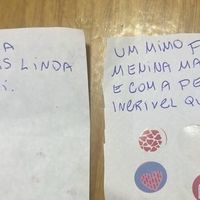 A
S LINDA
I.
UM MIMO
MENINA MA
E COM A PE
INCRIVEL QU